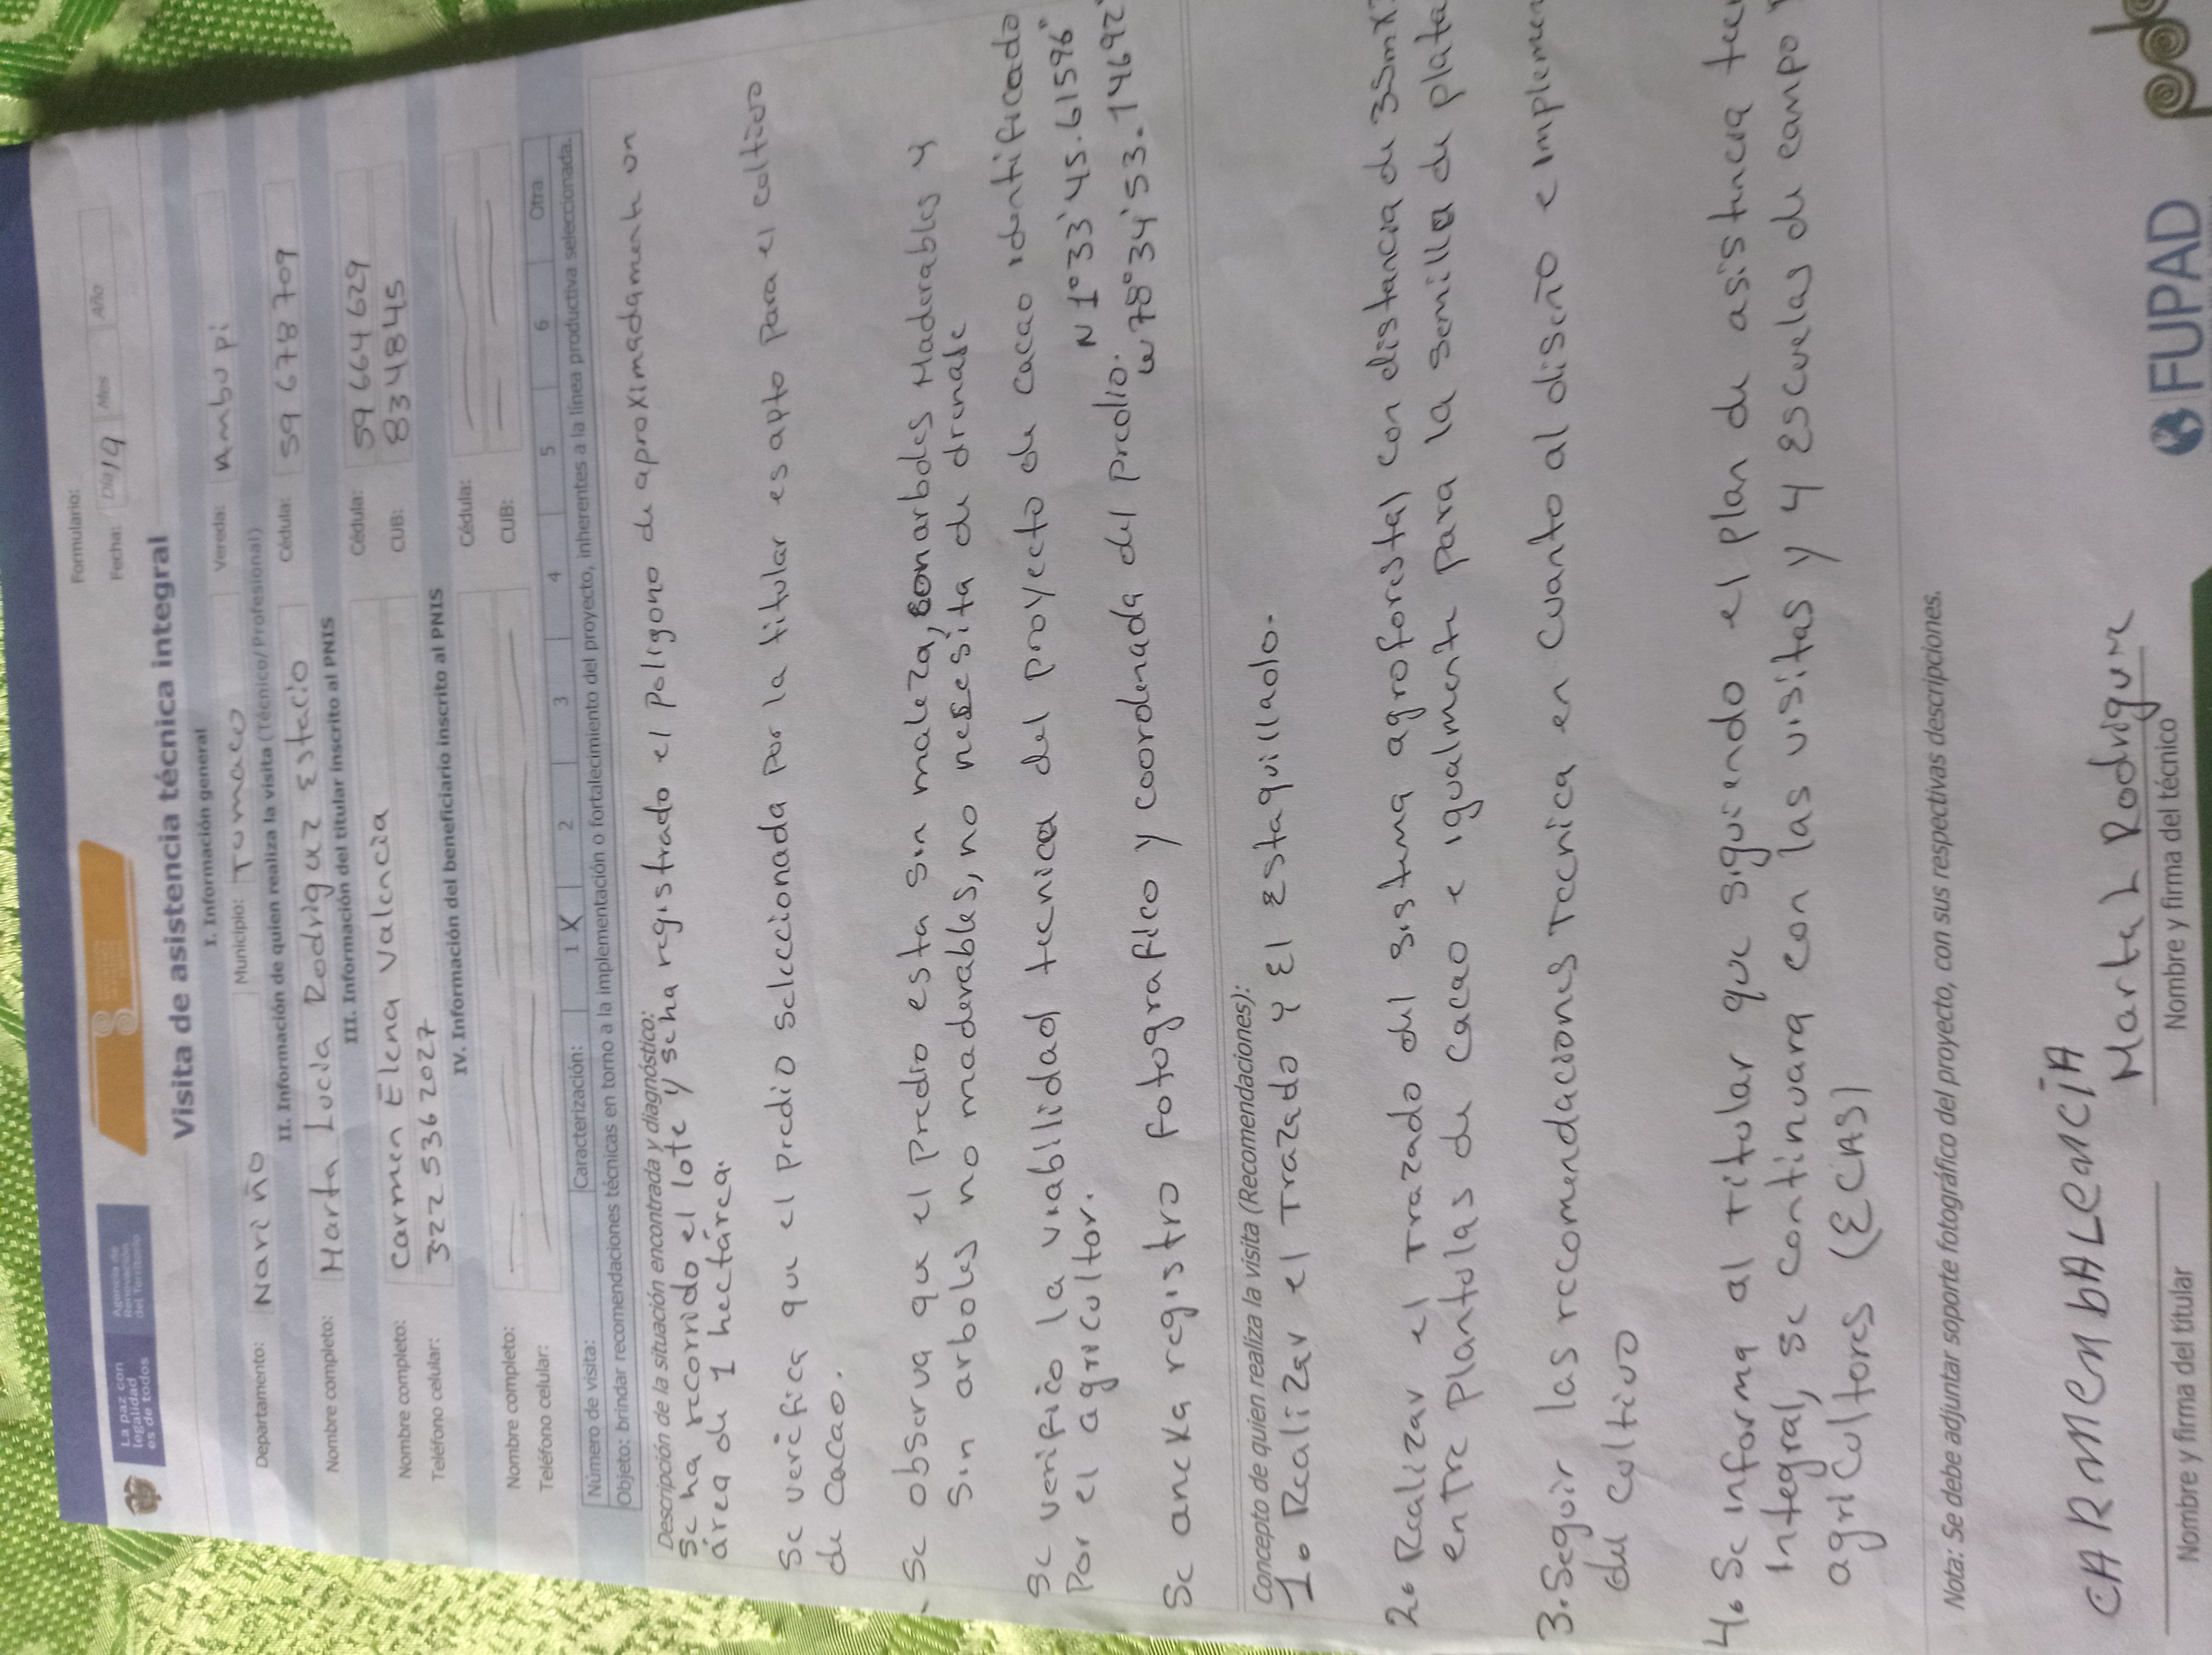 La paz con
legalidad
es de todos
Agencia de
Renovación
del Territorio
Formulario:
Fecha: Día 19 Mes Año
Visita de asistencia técnica integral
I. Información general
Departamento: Nariño Municipio: Tumaco Vereda: Ambupi
II. Información de quien realiza la visita (Técnico/Profesional)
Nombre completo: Marta Lucia Rodriguez Estacio Cédula: 59 678 709
III. Información del titular inscrito al PNIS
Nombre completo: Carmen Elena Valencia Cédula: 59 664 629
Teléfono celular: 322 536 2027 CUB: 8348845
IV. Información del beneficiario inscrito al PNIS
Nombre completo: Cédula:
Teléfono celular: CUB:
Número de visita: Caracterización: 1 X 2 3 4 5 6 Otra
Objeto: brindar recomendaciones técnicas en torno a la implementación o fortalecimiento del proyecto, inherentes a la línea productiva seleccionada.
Descripción de la situación encontrada y diagnóstico:
Se ha recorrido el lote y se ha registrado el Poligono de aproximadamente un
área de 1 hectárea.
Se verifica que el predio seleccionada por la titular es apto para el coltivo
de cacao.
- Se observa que el predio esta sin maleza, son arboles Maderables y
sin arboles no maderables, no nesesita de drenaje
Se verifico la viabilidad tecnica del proyecto de cacao identificado
Por el agricultor.
Se anexa registro fotografico y coordenada del predio. N 1°33'45.61596"
W 78°34'53.14692"
Concepto de quien realiza la visita (Recomendaciones):
1. Realizar el Trazado y El Estaquillado.
2. Realizar el Trazado del sistema agroforestal con distancia de 35mx
entre Plantulas de cacao e igualmente para la semilla de plata
3. Seguir las recomendaciones Tecnica en cuanto al diseño e implemen
del coltivo
4. Se informa al titular que siguiendo el plan de asistencia tec
Integral, se continuara con las visitas y 4 Escuelas de campo
agricultores (ECAS)
Nota: Se debe adjuntar soporte fotográfico del proyecto, con sus respectivas descripciones.
CARMEN bALENCiA
Marta L Rodrigue
Nombre y firma del titular Nombre y firma del técnico
FUPAD